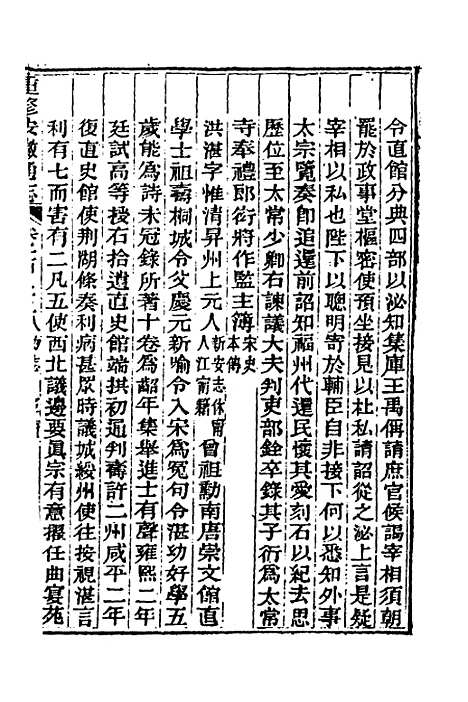 令直館分典四部以泌知集庫王禹偁請庶官候謁宰相須朝
罷於政事堂樞密使預坐接見以杜私請詔從之泌上言是疑
宰相以私也陛下以聰明寄於輔臣自非接下何以悉知外事
太宗覽奏卽追還前詔知福州代還民懷其愛刻石以紀去思
歷位至太常少卿右諫議大夫判吏部銓卒錄其子衍為太常
寺奉禮郎衍將作監主簿宋史本傳
洪湛字惟清昇州上元人新安志休甯人江甯籍曾祖勳南唐崇文館直
學士祖壽桐城令父慶元新喻令入宋為冤句令湛幼好學五
歲能為詩未冠錄所著十卷為齠年集舉進士有聲雍熙二年
廷試高等授石拾遺直史館端拱初通判壽許二州咸平二年
復直史館使荆湖條奏利病甚眾時議城綏州使往按視湛言
利有七而害有二凡五使西北議邊要眞宗有意擢任曲宴苑
重修安徽通志